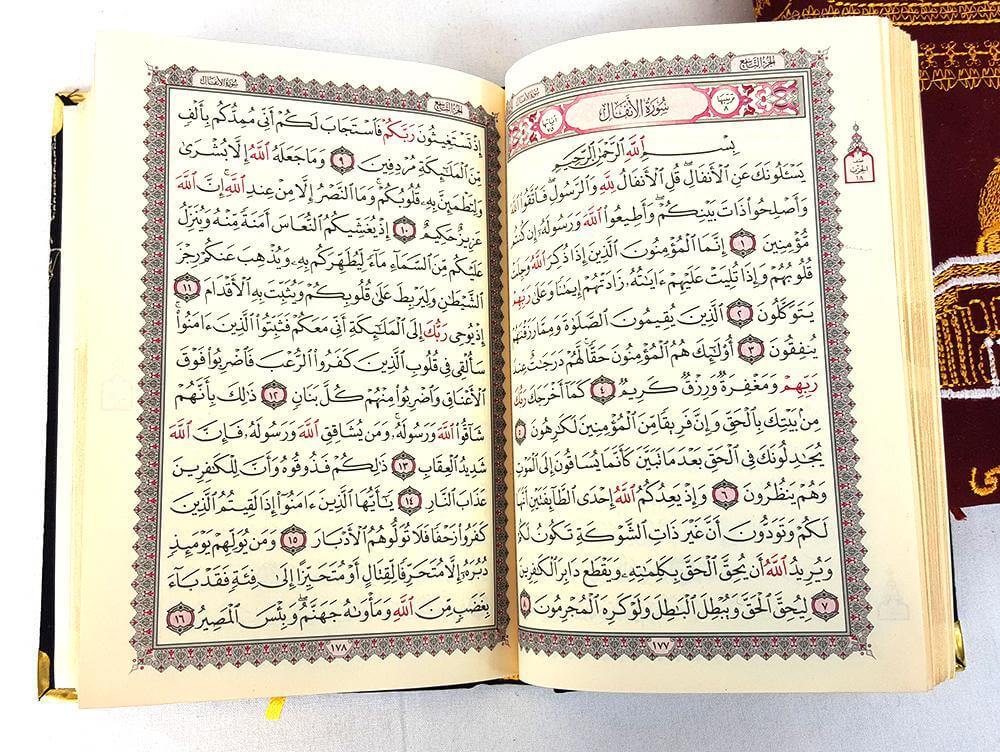 الجزء التاسع
سورة الأنفال
بِسْمِ ٱللَّهِ ٱلرَّحْمَٰنِ ٱلرَّحِيمِ
يَسْـَٔلُونَكَ عَنِ ٱلْأَنفَالِ قُلِ ٱلْأَنفَالُ لِلَّهِ وَٱلرَّسُولِ فَٱتَّقُوا۟ ٱللَّهَ
وَأَصْلِحُوا۟ ذَاتَ بَيْنِكُمْ وَأَطِيعُوا۟ ٱللَّهَ وَرَسُولَهُۥٓ إِن كُنتُم
مُّؤْمِنِينَ ١ إِنَّمَا ٱلْمُؤْمِنُونَ ٱلَّذِينَ إِذَا ذُكِرَ ٱللَّهُ وَجِلَتْ
قُلُوبُهُمْ وَإِذَا تُلِيَتْ عَلَيْهِمْ ءَايَٰتُهُۥ زَادَتْهُمْ إِيمَٰنًا وَعَلَىٰ رَبِّهِمْ
يَتَوَكَّلُونَ ٢ ٱلَّذِينَ يُقِيمُونَ ٱلصَّلَوٰةَ وَمِمَّا رَزَقْنَٰهُمْ
يُنفِقُونَ ٣ أُو۟لَٰٓئِكَ هُمُ ٱلْمُؤْمِنُونَ حَقًّا لَّهُمْ دَرَجَٰتٌ عِندَ
رَبِّهِمْ وَمَغْفِرَةٌ وَرِزْقٌ كَرِيمٌ ٤ كَمَآ أَخْرَجَكَ رَبُّكَ
مِنۢ بَيْتِكَ بِٱلْحَقِّ وَإِنَّ فَرِيقًا مِّنَ ٱلْمُؤْمِنِينَ لَكَٰرِهُونَ
يُجَٰدِلُونَكَ فِى ٱلْحَقِّ بَعْدَ مَا تَبَيَّنَ كَأَنَّمَا يُسَاقُونَ إِلَى ٱلْمَوْتِ
وَهُمْ يَنظُرُونَ ٦ وَإِذْ يَعِدُكُمُ ٱللَّهُ إِحْدَى ٱلطَّآئِفَتَيْنِ أَنَّهَا
لَكُمْ وَتَوَدُّونَ أَنَّ غَيْرَ ذَاتِ ٱلشَّوْكَةِ تَكُونُ لَكُمْ
وَيُرِيدُ ٱللَّهُ أَن يُحِقَّ ٱلْحَقَّ بِكَلِمَٰتِهِۦ وَيَقْطَعَ دَابِرَ ٱلْكَٰفِرِينَ
٧ لِيُحِقَّ ٱلْحَقَّ وَيُبْطِلَ ٱلْبَٰطِلَ وَلَوْ كَرِهَ ٱلْمُجْرِمُونَ ٨
١٧٧
سورة الأنفال
الجزء التاسع
إِذْ تَسْتَغِيثُونَ رَبَّكُمْ فَٱسْتَجَابَ لَكُمْ أَنِّى مُمِدُّكُم بِأَلْفٍ
مِّنَ ٱلْمَلَٰٓئِكَةِ مُرْدِفِينَ ٩ وَمَا جَعَلَهُ ٱللَّهُ إِلَّا بُشْرَىٰ
وَلِتَطْمَئِنَّ بِهِۦ قُلُوبُكُمْ وَمَا ٱلنَّصْرُ إِلَّا مِنْ عِندِ ٱللَّهِ إِنَّ ٱللَّهَ
عَزِيزٌ حَكِيمٌ ١٠ إِذْ يُغَشِّيكُمُ ٱلنُّعَاسَ أَمَنَةً مِّنْهُ وَيُنَزِّلُ
عَلَيْكُم مِّنَ ٱلسَّمَآءِ مَآءً لِّيُطَهِّرَكُم بِهِۦ وَيُذْهِبَ عَنكُمْ رِجْزَ
ٱلشَّيْطَٰنِ وَلِيَرْبِطَ عَلَىٰ قُلُوبِكُمْ وَيُثَبِّتَ بِهِ ٱلْأَقْدَامَ ١١
إِذْ يُوحِى رَبُّكَ إِلَى ٱلْمَلَٰٓئِكَةِ أَنِّى مَعَكُمْ فَثَبِّتُوا۟ ٱلَّذِينَ ءَامَنُوا۟
سَأُلْقِى فِى قُلُوبِ ٱلَّذِينَ كَفَرُوا۟ ٱلرُّعْبَ فَٱضْرِبُوا۟ فَوْقَ
ٱلْأَعْنَاقِ وَٱضْرِبُوا۟ مِنْهُمْ كُلَّ بَنَانٍ ١٢ ذَٰلِكَ بِأَنَّهُمْ
شَآقُّوا۟ ٱللَّهَ وَرَسُولَهُۥ وَمَن يُشَاقِقِ ٱللَّهَ وَرَسُولَهُۥ فَإِنَّ ٱللَّهَ
شَدِيدُ ٱلْعِقَابِ ١٣ ذَٰلِكُمْ فَذُوقُوهُ وَأَنَّ لِلْكَٰفِرِينَ
عَذَابَ ٱلنَّارِ ١٤ يَٰٓأَيُّهَا ٱلَّذِينَ ءَامَنُوٓا۟ إِذَا لَقِيتُمُ ٱلَّذِينَ
كَفَرُوا۟ زَحْفًا فَلَا تُوَلُّوهُمُ ٱلْأَدْبَارَ ١٥ وَمَن يُوَلِّهِمْ يَوْمَئِذٍ
دُبُرَهُۥٓ إِلَّا مُتَحَرِّفًا لِّقِتَالٍ أَوْ مُتَحَيِّزًا إِلَىٰ فِئَةٍ فَقَدْ بَآءَ
بِغَضَبٍ مِّنَ ٱللَّهِ وَمَأْوَىٰهُ جَهَنَّمُ وَبِئْسَ ٱلْمَصِيرُ ١٦
١٧٨